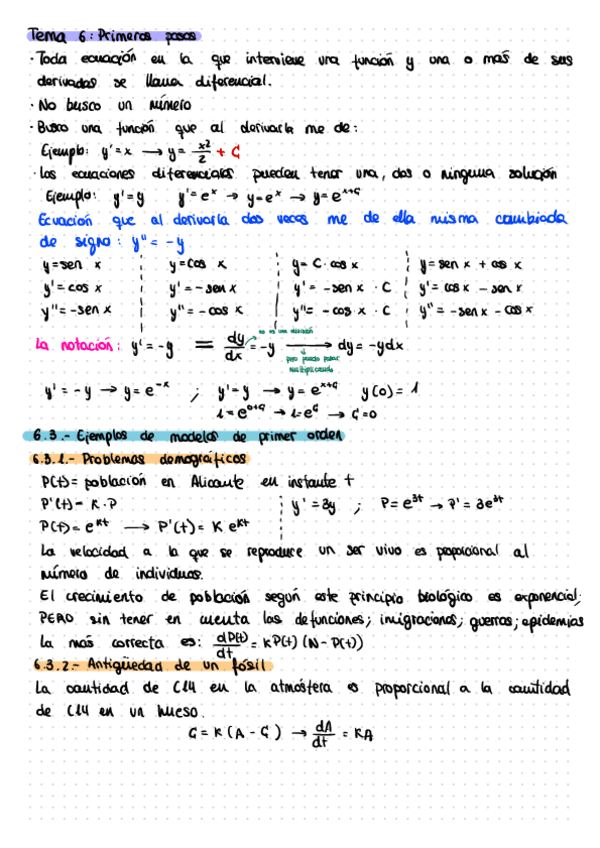 Tema 6: Primeros pasos
· Toda ecuación en la que interviene una función y una o más de sus
derivadas se llama diferencial.
· No busco un número
· Busco una función que al derivarla me de:
Ejemplo: y' = x → y = x²/2 + C
· Las ecuaciones diferenciales pueden tener una, dos o ninguna solución
Ejemplo: y' = y y' = eˣ → y = eˣ → y = eˣ⁺ᶜ
Ecuación que al derivarla dos veces me de ella misma cambiada
de signo: y'' = -y
y = sen x y = cos x y = C · cos x y = sen x + cos x
y' = cos x y' = - sen x y' = - sen x · C y' = cos x - sen x
y'' = -sen x y'' = - cos x y'' = - cos x · C y'' = - sen x - cos x
no es una división
La notación: y' = -y = dy/dx = -y → dy = -ydx
pero puedo pasar
multiplicando
y' = -y → y = e⁻ˣ ; y' = y → y = eˣ⁺ᶜ y(0) = 1
1 = e⁰⁺ᶜ → 1 = eᶜ → C = 0
6.3.- Ejemplos de modelos de primer orden
6.3.1.- Problemas demográficos
P(t) = población en Alicante en instante t
P'(t) = K · P y' = 3y ; P = e³ᵗ → P' = 3e³ᵗ
P(t) = eᴷᵗ → P'(t) = K eᴷᵗ
La velocidad a la que se reproduce un ser vivo es poporcional al
número de individuos.
El crecimiento de población según este principio biológico es exponencial;
PERO sin tener en cuenta las defunciones; inmigraciones; guerras; epidemias
La más correcta es: dP(t)/dt = KP(t) (N - P(t))
6.3.2.- Antigüedad de un fósil
La cantidad de C14 en la atmósfera es proporcional a la cantidad
de C14 en un hueso.
C = K (A - C) → dA/dt = KA